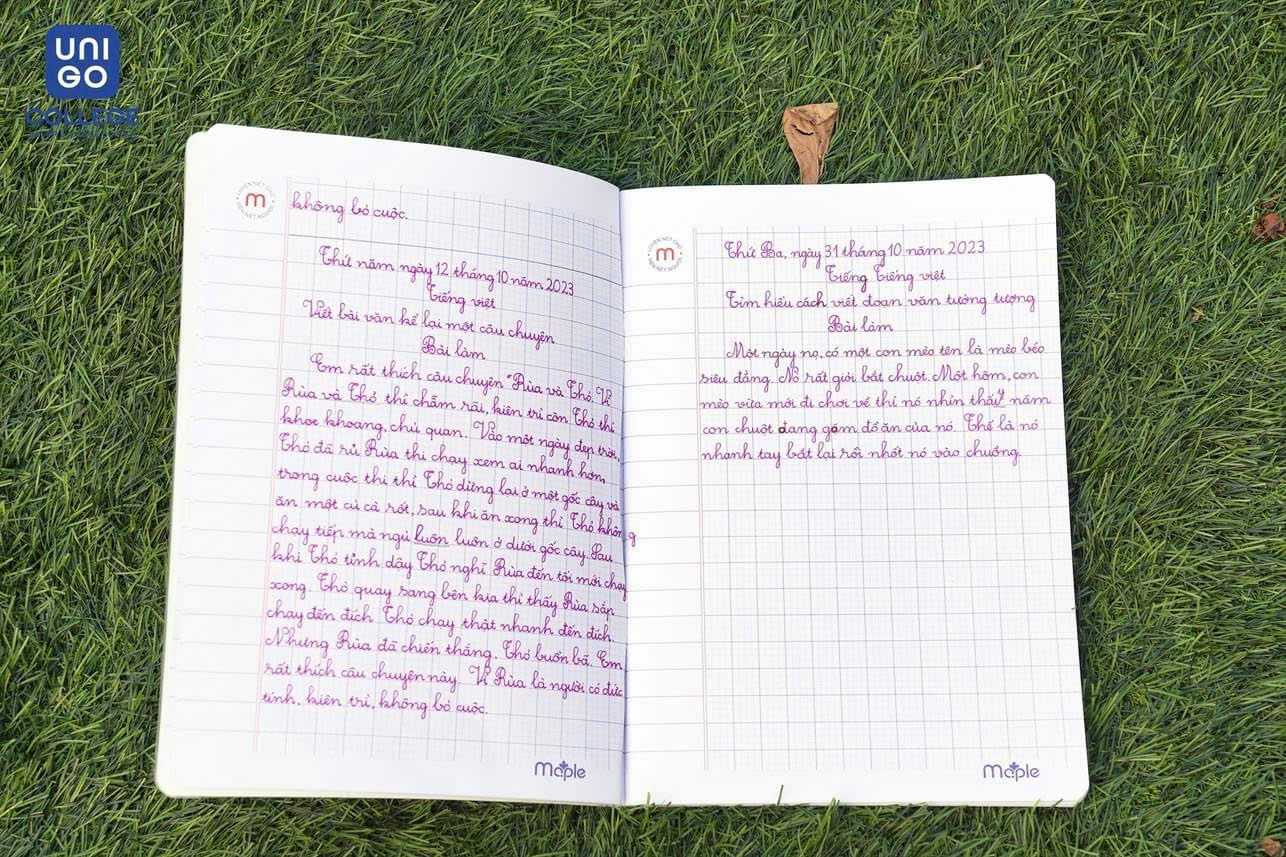 UNI
GO
COLLEGE
m
không bỏ cuộc.
Thứ năm ngày 12 tháng 10 năm 2023
Tiếng việt
Viết bài văn kể lại một câu chuyện
Bài làm
Em rất thích câu chuyện "Rùa và Thỏ. Vì
Rùa và Thỏ thì chẫm rãi, kiên trì còn Thỏ thì
khoe khoang, chủ quan. Vào một ngày đẹp trời,
Thỏ đã rủ Rùa thi chạy xem ai nhanh hơn,
trong cuộc thi thì Thỏ dừng lại ở một gốc cây và
ăn một củ cà rốt, sau khi ăn xong thì Thỏ không
chạy tiếp mà ngủ luôn luôn ở dưới gốc cây. Sau
khi Thỏ tỉnh dậy Thỏ nghĩ Rùa đến tối mới chạy
xong. Thỏ quay sang bên kia thì thấy Rùa sắp
chạy đến đích Thỏ chạy thật nhanh đến đích.
Nhưng Rùa đã chiến thắng. Thỏ buồn bã. Em
rất thích câu chuyện này. Vì Rùa là người có đức
tính, kiên trì, không bỏ cuộc.
Maple
LUYỆN NÉT CHỮ
m
RÈN NẾT NGƯỜI
Thứ Ba, ngày 31 tháng 10 năm 2023
Tiếng Tiếng việt
Tìm hiểu cách viết đoạn văn tưởng tượng
Bài làm
Một ngày nọ, có một con mèo tên là mèo béo
siêu đẳng. Nó rất giỏi bắt chuột. Một hôm, con
mèo vừa mới đi chơi về thì nó nhìn thấy năm
con chuột đang gặm đồ ăn của nó. Thế là nó
nhanh tay bắt lại rồi nhốt nó vào chuồng.
Maple